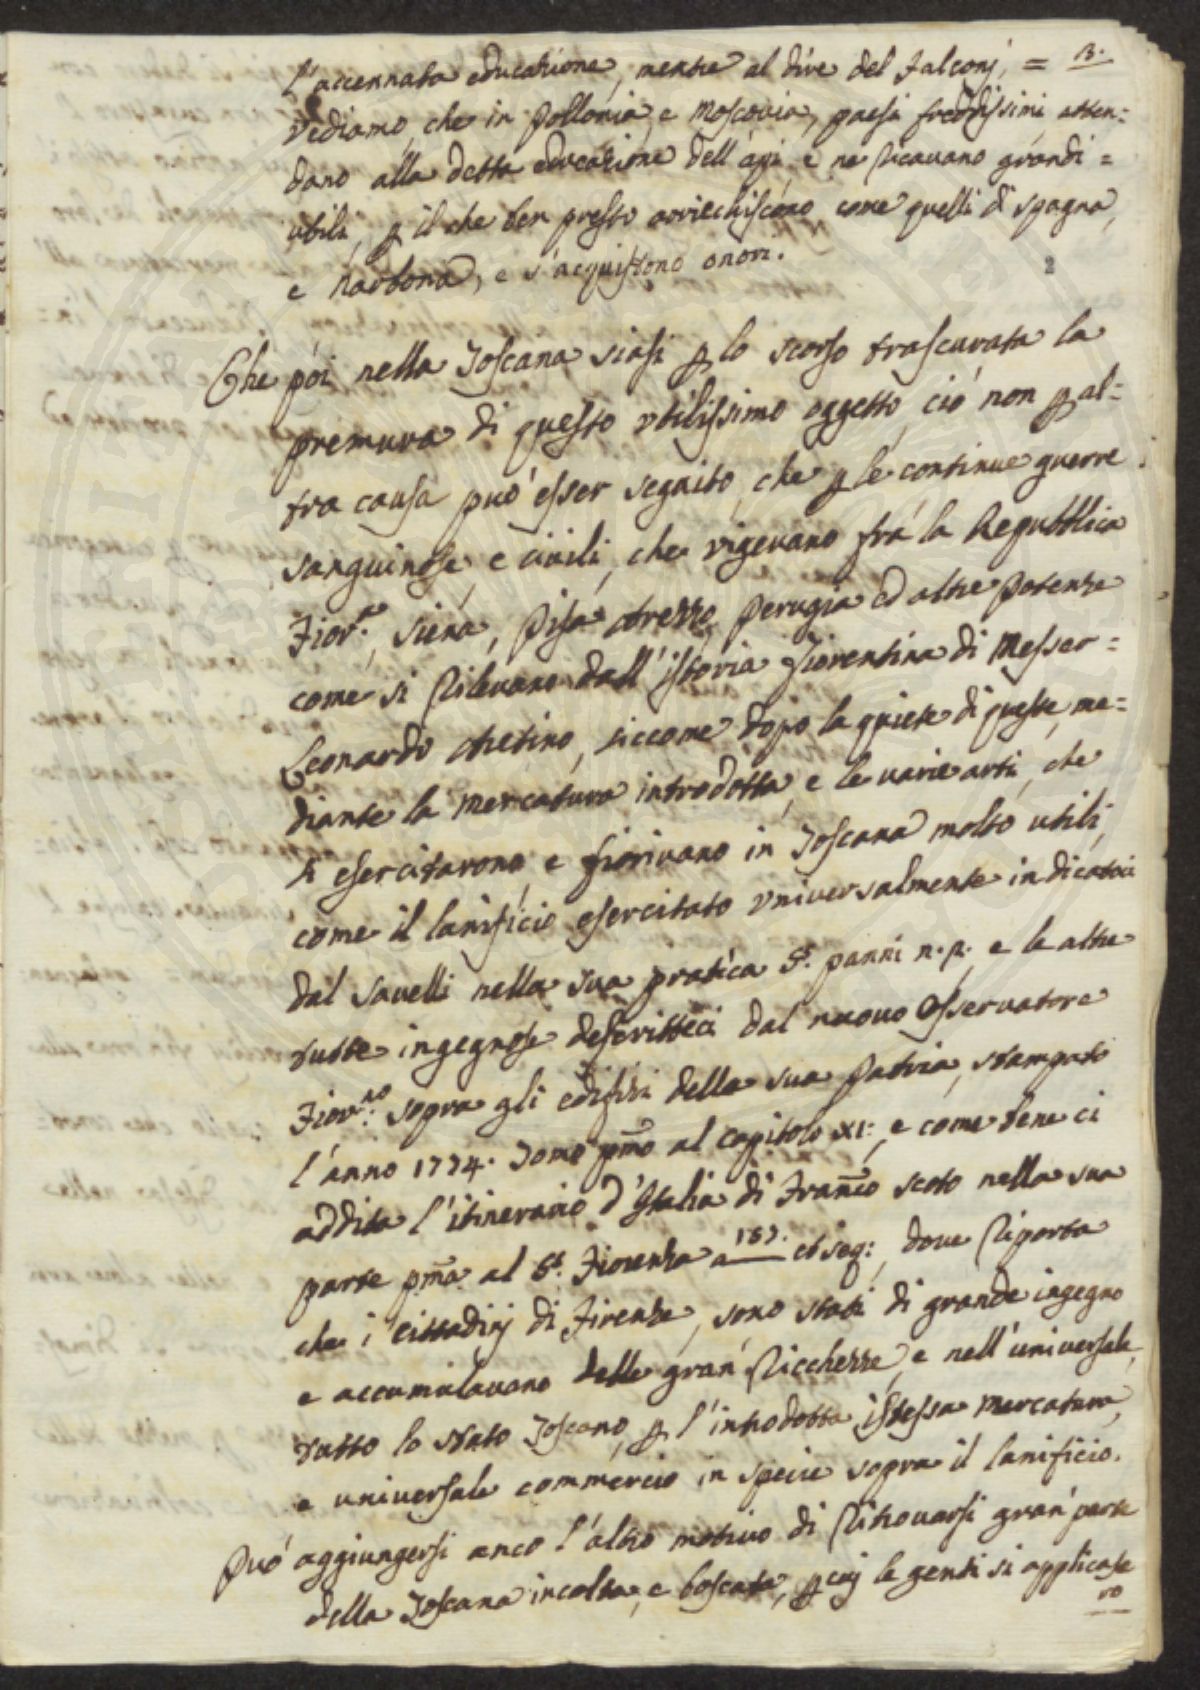 3.
l'accennata educazione, mentre al dire del Falconj, =
vediamo, che in Pollonia, e Moscovia, paesi freddissimi atten=
dano alla detta educazione dell'api, e ne ricavano grandi =
utili, p il che ben presto arriechiscono come quelli di Spagna,
e Narbona, e s'acquistono onori.
2
Che poi nella Toscana siasi p lo scorso trascurata la
premura di questo utilissimo oggetto, ciò non p al=
tra causa può esser seguito, che p le continue guerre
sanguinose, e civili, che vigevano frà la Repubblica
Fior.na, Siena, Pisa, Arezzo, Perugia ed altre Potenze
come si rilevano dall'istoria Fiorentina di Messer =
Leonardo Aretino, siccome dopo la quiete di queste, me=
diante la mercatura introdotta, e le varie arti, che
si esercitarono e fiorivano in Toscana molto utili,
come il lanificio esercitato universalmente indicatoci
dal Savelli nella sua pratica §. panni n. 2. e le altre
tutte ingegnose descritteci dal nuovo Osservatore
Fior.no sopra gli edifizi della sua Patria, stampato
l'anno 1774. Tomo pmo al Capitolo XI: e come bene ci
addita l'itinerario d'Italia di Franco Scoto nella sua
parte pma al §. Fiorenza a 157. et seq:, dove riporta
che i Cittadinj di Firenze, sono stati di grande ingegno
e accumulavano delle gran ricchezze, e nell'universale,
tutto lo stato Toscano, p l'introdotta istessa Mercatura,
e universale commercio in specie sopra il lanificio.
Può aggiungersi anco l'altro motivo di ritrovarsi gran parte
della Toscana incolta, e boscata, p cui le genti si applicase
ro